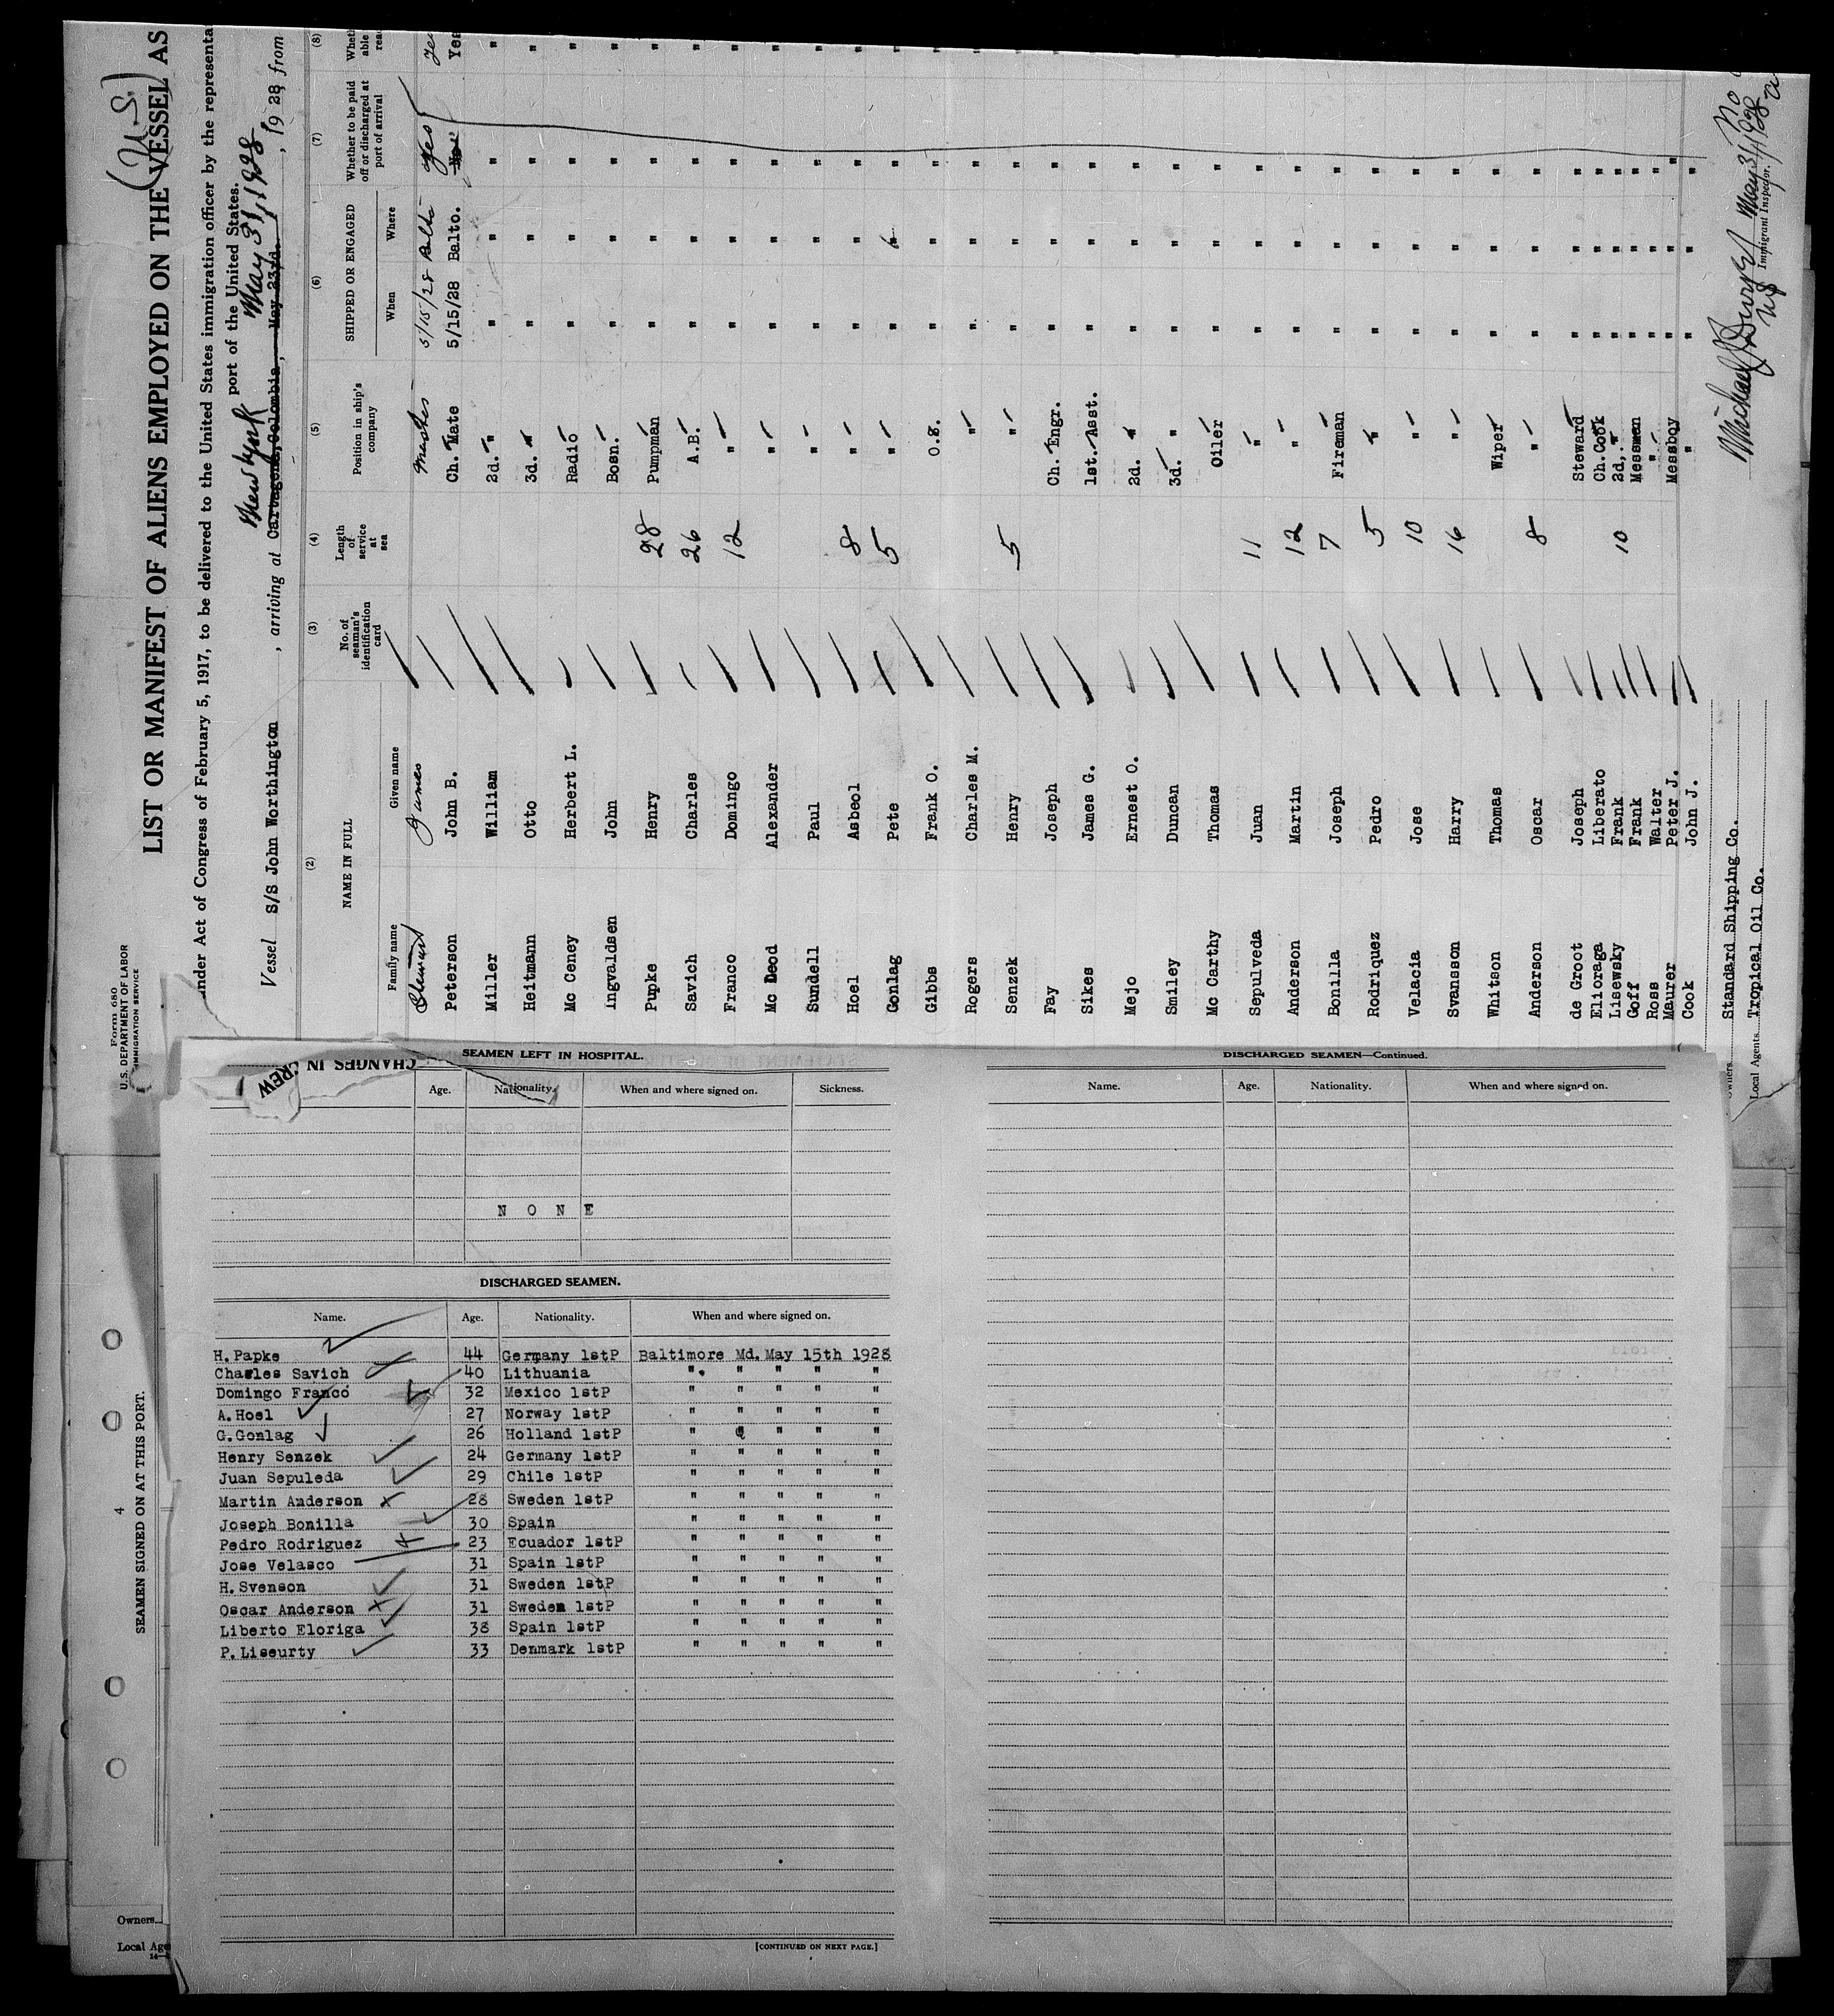 Form 680
U.S. DEPARTMENT OF LABOR
IMMIGRATION SERVICE
(U.S.)
LIST OR MANIFEST OF ALIENS EMPLOYED ON THE VESSEL AS
under Act of Congress of February 5, 1917, to be delivered to the United States immigration officer by the representa
port of the United States.
New York May 31, 1928
Vessel S/S John Worthington , arriving at Cartagena, Colombia, May 23rd. , 1928, from
(2) (3) (4) (5) (6) (7) (8)
NAME IN FULL No. of seaman's identification card Length of service at sea Position in ship's company SHIPPED OR ENGAGED Whether to be paid off or discharged at port of arrival
Family name Given name When Where
Stewart James Master 5/15/28 Balto Yes
Peterson John B. Ch. Mate 5/15/28 Balto. Yes
Miller William 2d. " " " " "
Heitmann Otto 3d. " " " " "
Mc Ceney Herbert L. Radio " " " "
Ingvaldsen John Bosn. " " " "
Pupke Henry 28 Pumpman " " " "
Savich Charles 26 A.B. " " " "
Franco Domingo 12 " " " " "
Mc Leod Alexander " " " " "
Sundell Paul " " " " "
Hoel Asbeol 8 " " " " "
Gonlag Pete 5 " " " " "
Gibbs Frank O. O.S. " " " "
Rogers Charles M. " " " " "
Senzek Henry 5 " " " " "
Fay Joseph Ch. Engr. " " " "
Sikes James G. 1st. Asst. " " " "
Mejo Ernest O. 2d. " " " "
Smiley Duncan 3d. " " " "
Mc Carthy Thomas Oiler " " "
Sepulveda Juan 11 " " " "
Anderson Martin 12 " " " "
Bonilla Joseph 7 Fireman " " "
Rodriquez Pedro 5 " " " "
Velacia Jose 10 " " " "
Svansson Harry 16 " " " "
Whitson Thomas Wiper " " "
Anderson Oscar 8 " " " "
de Groot Joseph Steward " " "
Elioraga Liberato Ch. Cook " " "
Lisewsky Frank 10 2d. " " " "
Goff Frank Messman " " "
Ross Walter " " " "
Maurer Peter J. Messboy " " "
Cook John J. " " " "
Owners Standard Shipping Co.
Local Agents Tropical Oil Co.
May 31, 1928
Immigrant Inspector.
CHANGES IN CREW
SEAMEN LEFT IN HOSPITAL.
Age. Nationality. When and where signed on. Sickness.
N O N E
DISCHARGED SEAMEN.
Name. Age. Nationality. When and where signed on.
H. Papke 44 Germany 1stP Baltimore Md. May 15th 1928
Charles Savich 40 Lithuania " " " " "
Domingo Franco 32 Mexico 1stP " " " " "
A. Hoel 27 Norway 1stP " " " " "
G. Gonlag 26 Holland 1stP " " " " "
Henry Senzek 24 Germany 1stP " " " " "
Juan Sepuleda 29 Chile 1stP " " " " "
Martin Anderson 28 Sweden 1stP " " " " "
Joseph Bonilla 30 Spain " " " " "
Pedro Rodriguez 23 Ecuador 1stP " " " " "
Jose Velasco 31 Spain 1stP " " " " "
H. Svenson 31 Sweden 1stP " " " " "
Oscar Anderson 31 Sweden 1stP " " " " "
Liberto Eloriga 38 Spain 1stP " " " " "
P. Liseurty 33 Denmark 1stP " " " " "
[CONTINUED ON NEXT PAGE.]
DISCHARGED SEAMEN—Continued.
Name. Age. Nationality. When and where signed on.
4
SEAMEN SIGNED ON AT THIS PORT.
Owners
Local Age